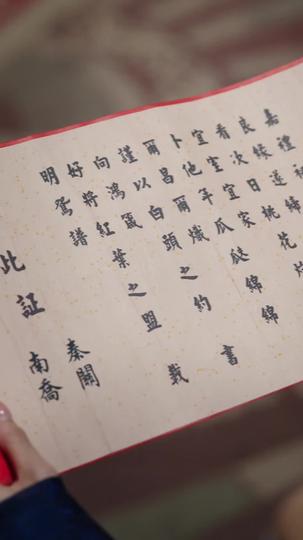 嘉禮初
良緣遂締
看次日桃花
宜室宜家
卜他年瓜瓞綿綿
爾昌爾熾
謹以白頭之約書
向鴻箋
好將紅葉之盟載
明鴛譜
此証
秦關
南喬